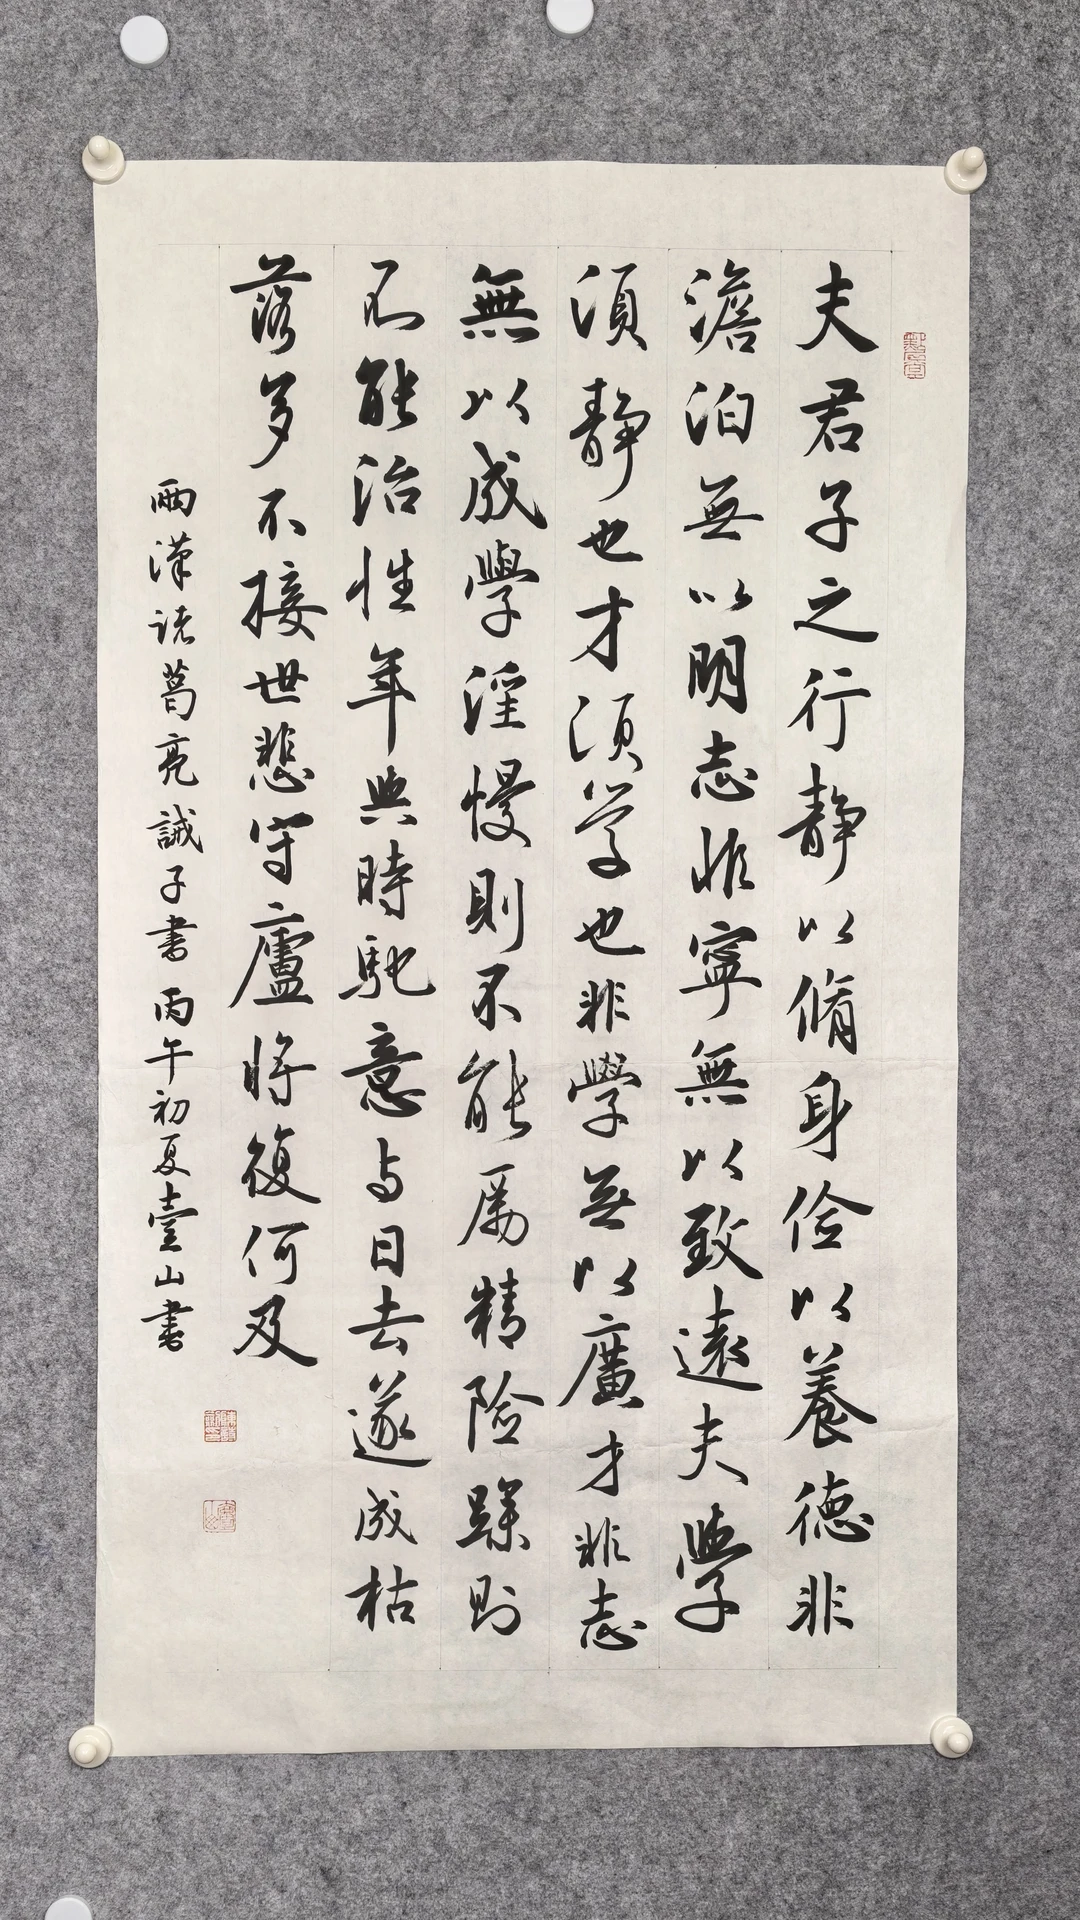 夫君子之行静以脩身俭以養德非
澹泊無以明志非寧無以致遠夫學
須静也才須学也非學無以廣才非志
無以成學淫慢則不能励精险躁則
不能治性年與時馳意与日去遂成枯
落多不接世悲守廬将復何及
兩漢诸葛亮誡子書 丙午初夏壹山書